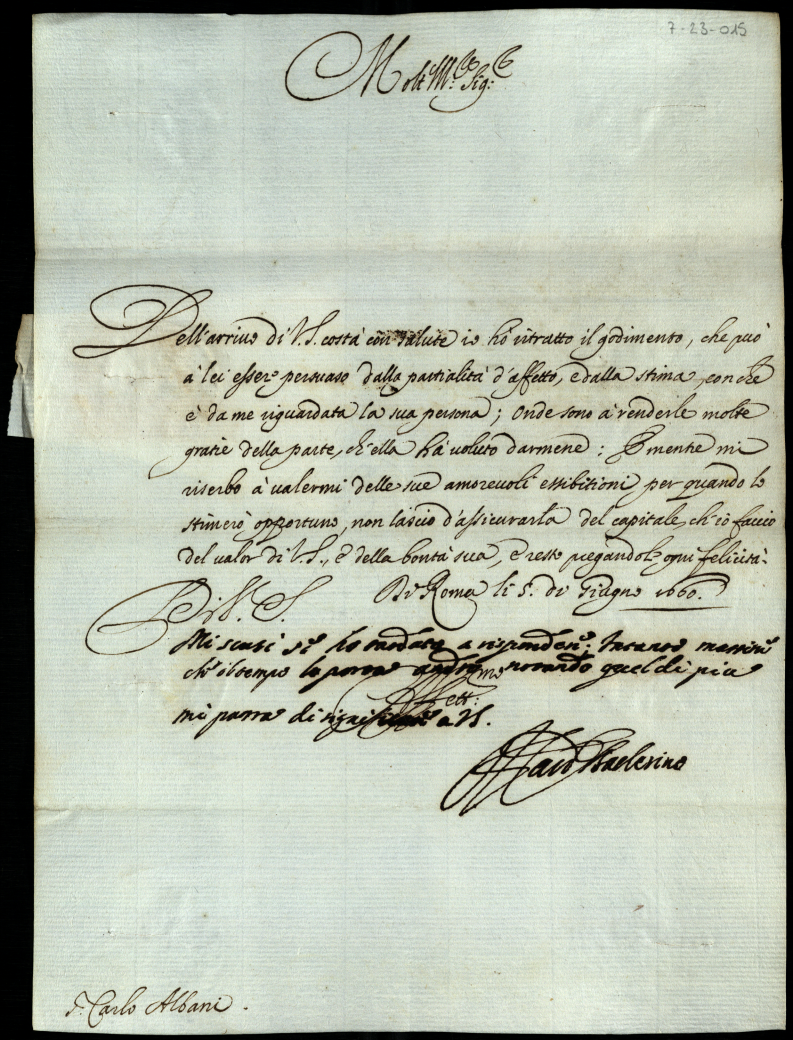 7-23-015
Molt' Ill.re Sig.re
Dell'arrivo di V.S. costà con salute io hò ritratto il godimento, che può
à lei essere persuaso dalla partialità d'affetto, e dalla stima, con che
è da me riguardata la sua persona; onde sono à renderle molte
gratie della parte, ch'ella hà voluto darmene; E mentre mi
riserbo à valermi delle sue amorevoli essibitioni per quando lo
stimerò opportuno, non lascio d'assicurarla del capitale, ch'io faccio
del valor di V.S., e della bontà sua, e resto pregandole ogni felicità.
Di V.S. Di Roma li 5. di Giugno 1660.
Mi scusi se ho tardato a risponder; Intanto
che il tempo lo porta andrò notando quel di più
Aff.mo
mi parrà di significare a V.S.
Card. Barberino
S. Carlo Albani.